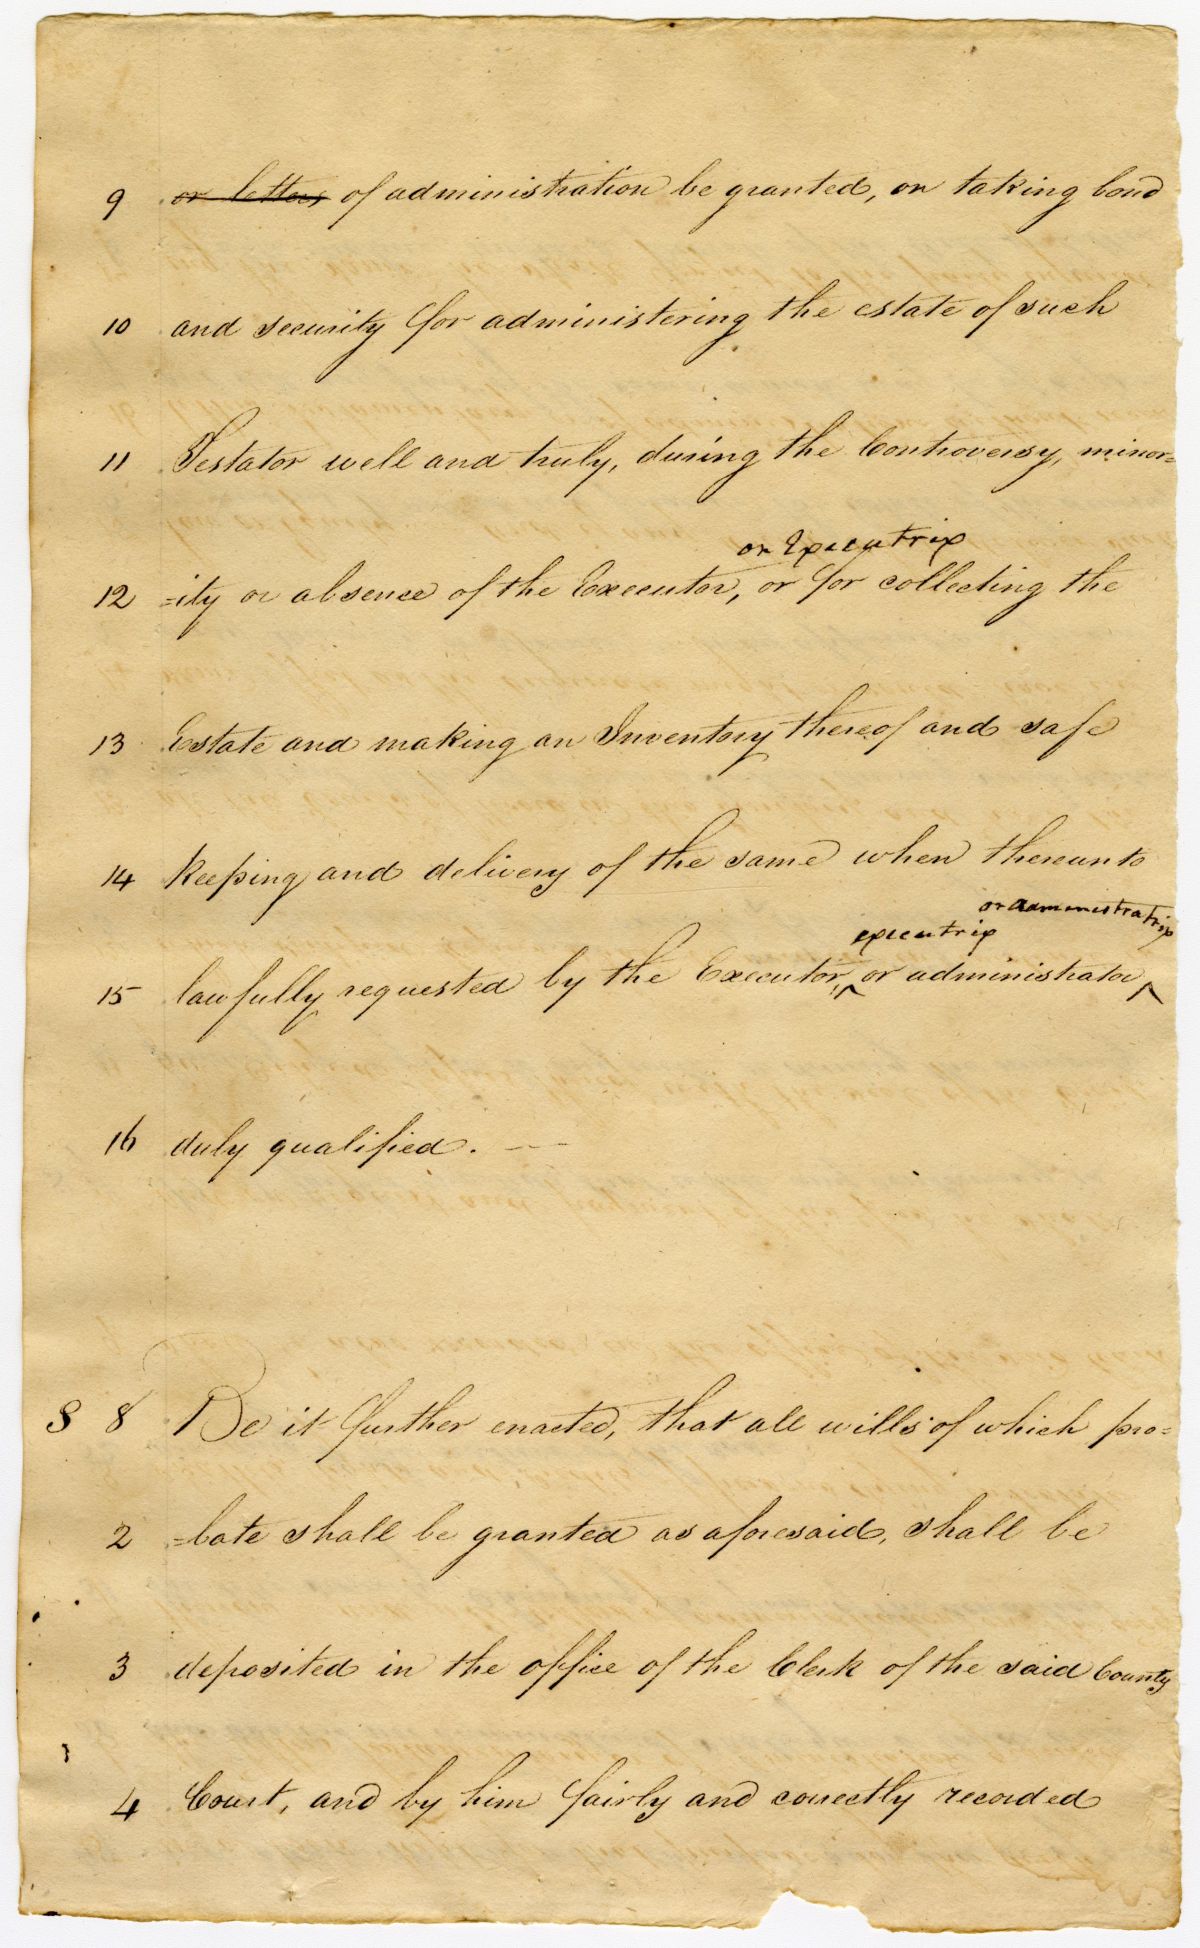 9 or letters of administration be granted, on taking bond
10 and security for administering the estate of such
11 Testator well and truly, during the Controversy, minor=
or Executrix
12 =ity or absence of the Executor, or for collecting the
13 Estate and making an Inventory thereof and safe
14 keeping and delivery of the same when thereunto
or administratrix
executrix
15 lawfully requested by the Executor, or administrator
16 duly qualified. —
S 8 Be it further enacted, that all wills of which pro=
2 =bate shall be granted as aforesaid, shall be
3 deposited in the office of the Clerk of the said County
4 Court, and by him fairly and correctly recorded